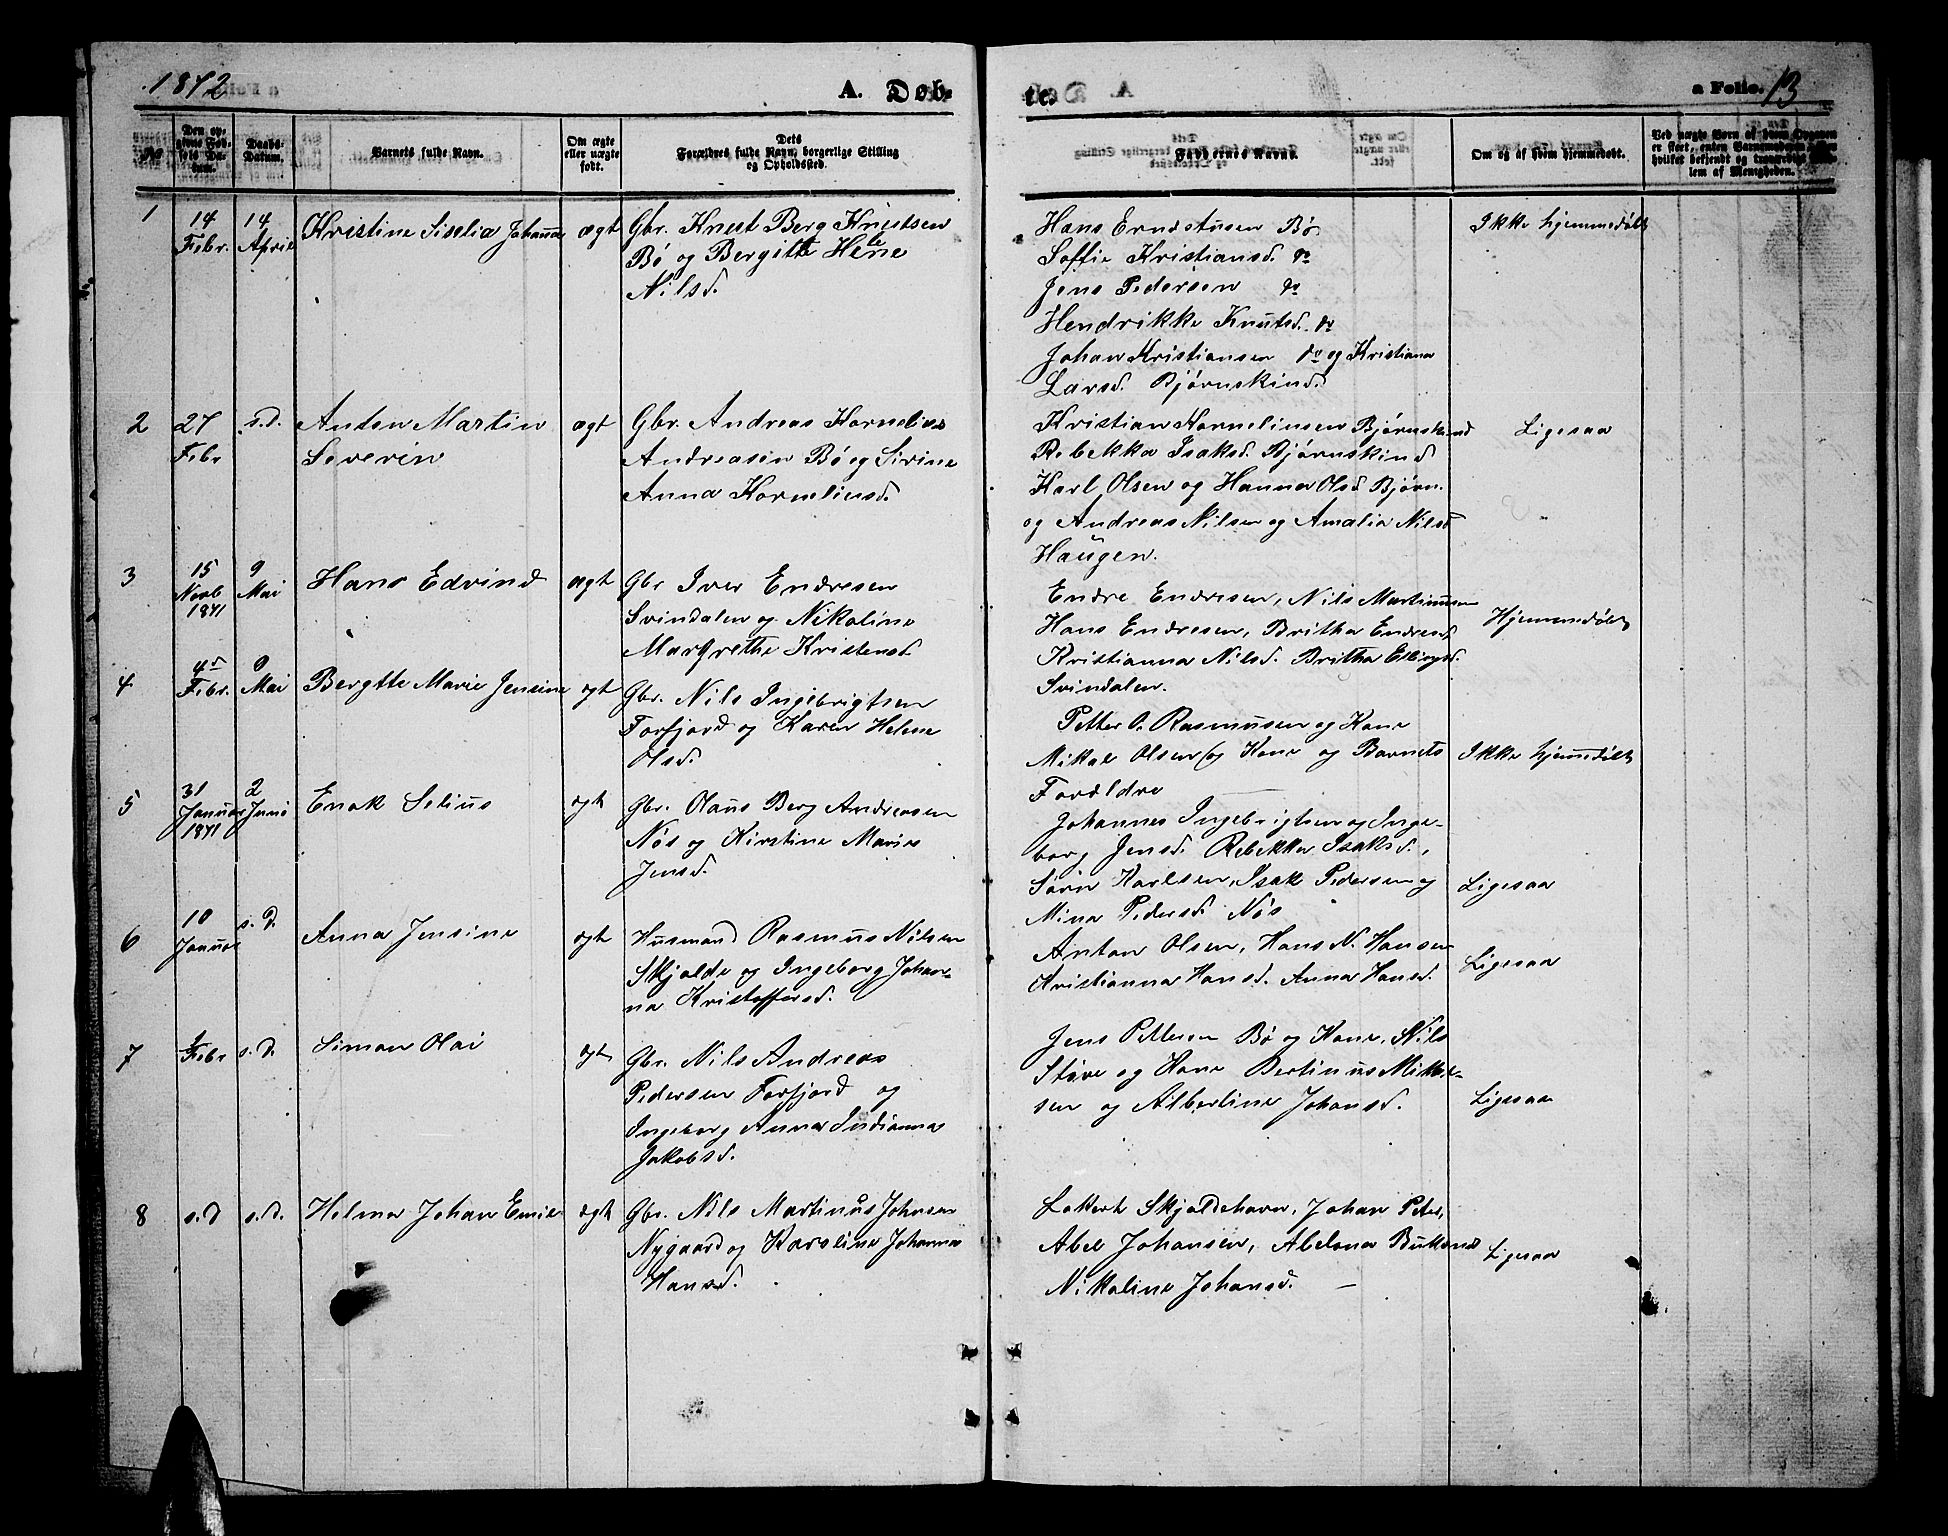 1872
A. Døb-
te.
a Folio. 13
No
Den op-
givne Fød-
sels Da-
tum.
Daabs-
Datum.
Barnets fulde Navn.
Om ægte
eller uægte
født.
Dets
Forældres fulde Navn, borgerlige Stilling
og Opholdssted.
Faddernes Navne.
Om og af hvem hjemmedøbt.
Ved uægte Børn af hvem Opgaven
er skeet, enten Barnemoderen eller
hvilket bekjendt og troværdigt
lem af Menigheden.
1
14
Febr.
14
April
Kristine Siselia Johanna
ægt
Gbr. Knut Berg Knutsen
Bø og Bergitte Helene
Nilsd.
Hans Erndstüsen Bø
Soffie Kristiansd. do
Jens Pedersen do
Hendrikke Knütsd. do
Johan Kristiansen do og Kristiana
Larsd. Bjørnskind.
Ikke hjemmedøbt
2
27
Febr
s.d.
Anton Martin
Severin
ægt
Gbr. Andreas Kornelius
Andreasen Bø og Sirine
Anna Korneliusd.
Kristian Korneliusen Bjørnskind
Rebekka Isaksd. Bjørnskind
Karl Olsen og Hanna Olsd Bjørn.
og Andreas Nilsen og Amalia Nilsd
Haugen.
Ligesaa
3
15
Novb
1871
9
Mai
Hans Edvind
ægt
Gbr Iver Endresen
Svindalen og Nikoline
Margrethe Kristensd.
Endre Endresen, Nils Martinusen
Hans Endresen, Britha Endresd
Kristianna Nilsd. Britha Ellingsd.
Svindalen.
Hjemmedøbt
4
4de
Febr.
9
Mai
Bergtte Marie Jensine
ægt
Gbr. Nils Ingebrigtsen
Forfjord og Karen Helene
Olsd.
Petter O. Rasmusen og Kone
Mikal Olsen og Kone og Barnets
Forældre
Ikke hjemedøbt
5
31
Januar
1871
2
Juni
Enok Selius
ægt
Gbr. Olaus Berg Andreasen
Nøs og Kirstine Marie
Jensd.
Johannes Ingebrigtsen og Inge-
borg Jensd. Rebekka Isaksd,
Sørn Karlsen, Isak Pedersen og
Mina Pedersd. Nøs
Ligesaa
6
10
Januar
s.d.
Anna Jensine
ægt
Husmand Rasmus Nilsen
Skjolde og Ingeborg Johan-
na Kristoffersd.
Anton Olsen, Hans N. Hansen
Kristianna Hansd. Anna Hansd.
Ligesaa
7
Febr
s.d.
Simon Olai
ægt
Gbr. Nils Andreas
Pedersen Forfjord og
Ingeborg Anna Indianna
Jakobsd.
Jens Pettersen Bø og Kone, Nils
Støve og Kone Bertinus Mikal-
sen og Albertine Johansd.
Ligesaa
8
s.d
s.d.
Helmer Johan Emil
ægt
Gbr. Nils Martinus Johnsen
Nygaard og Karoline Johanna
Hansd.
Lokert Skjoldehavn, Johan Peter,
Abel Johansen, Abelona
Nikoline Johansd. —
Ligesaa